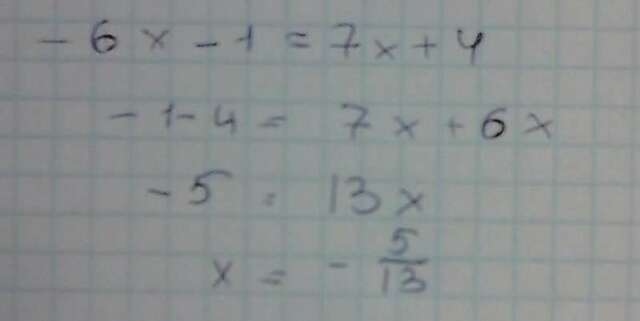 - 6x - 1 = 7x + 4
- 1 - 4 = 7x + 6x
- 5 = 13x
x = - 5/13